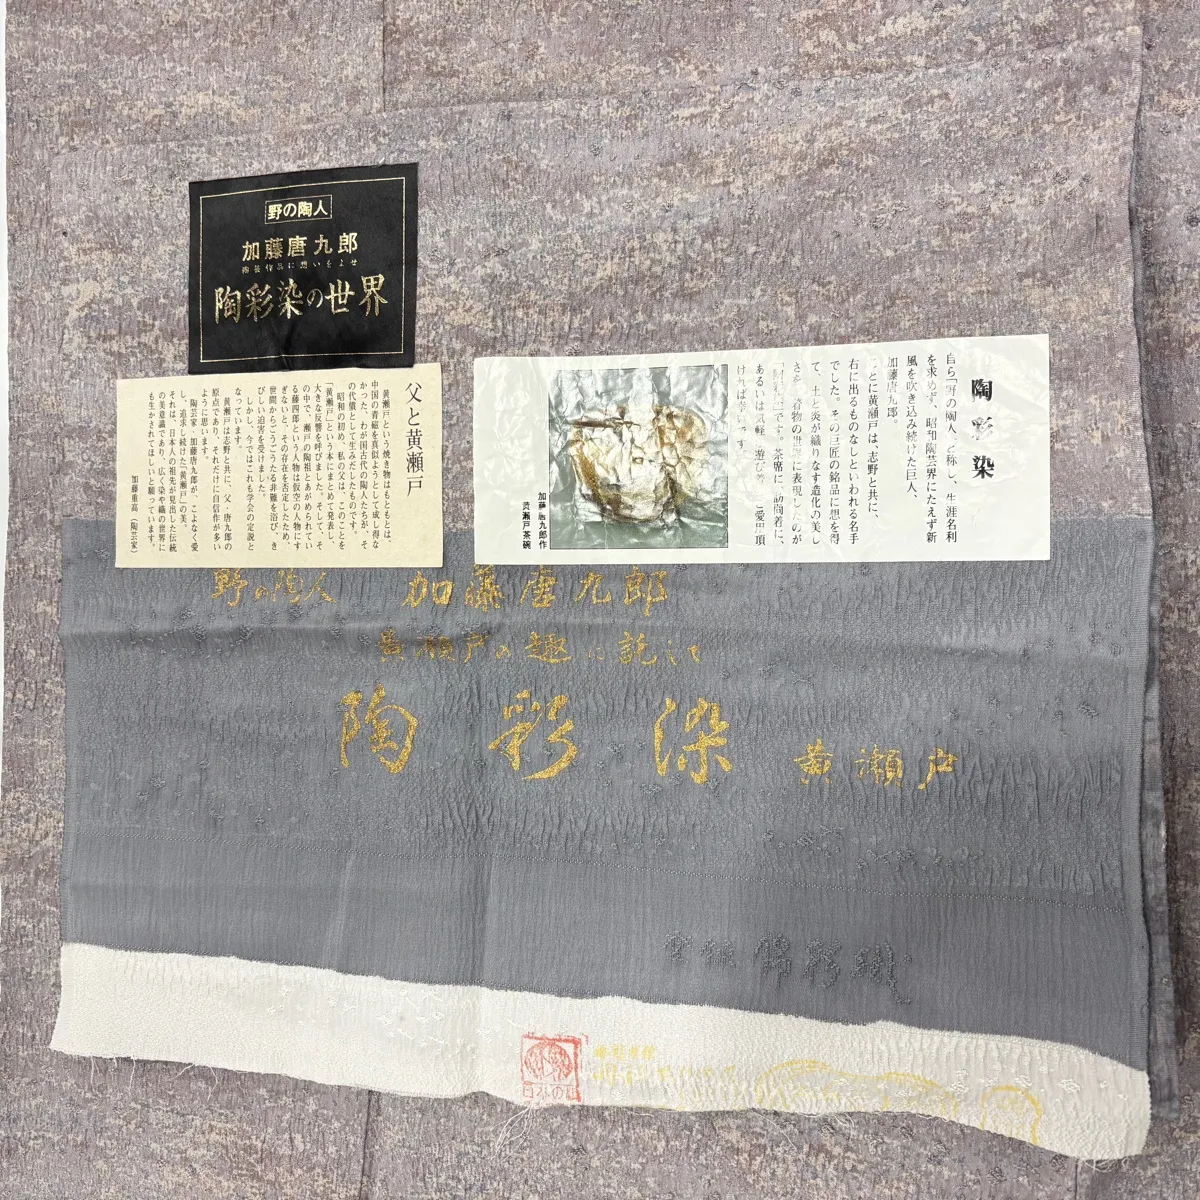 野の陶人
加藤唐九郎
陶芸作品に想いをよせ
陶彩染の世界
父と黄瀬戸
黄瀬戸という焼き物はもともとは、
中国の青磁を真似ようとして成し得な
かった、わが国古代の陶人たちが、そ
の代償として生みだしたものです。
昭和の初め、私の父は、このことを
「黄瀬戸」という本にまとめて発表し、
大きな反響を呼びました。そして、そ
の中で、瀬戸の陶祖とあがめられてい
る藤四郎という人物は仮空の人物にす
ぎないと、その存在を否定したため、
世間からごうごうたる非難を浴び、き
びしい迫害を受けました。
しかし、今ではこれも学会の定説と
なっています。
黄瀬戸は志野と共に、父・唐九郎の
原点であり、それだけに自信作が多い
ように思います。
陶芸家・加藤唐九郎が、こよなく愛
し、追求し続けた「黄瀬戸」の美。
それは、日本人の祖先が見出した伝統
の美意識であり、広く染や織の世界に
も生かされてほしいと願っています。
加藤重高(陶芸家)
陶彩染
自ら「野の陶人」と称し、生涯名利
を求めず、昭和陶芸界にたえず新
風を吹き込み続けた巨人、
加藤唐九郎。
ことに黄瀬戸は、志野と共に、
右に出るものなしといわれる名手
でした。その巨匠の銘品に想を得
て、土と炎が織りなす造化の美し
さを、着物の世界に表現したのが
です。茶席に、訪問着に、
あるいは気軽な遊び着に
ければ
加藤唐九郎作
黄瀬戸茶碗
野の陶人 加藤唐九郎
黄瀬戸の趣に託して
陶彩染 黄瀬戸
日本の絹